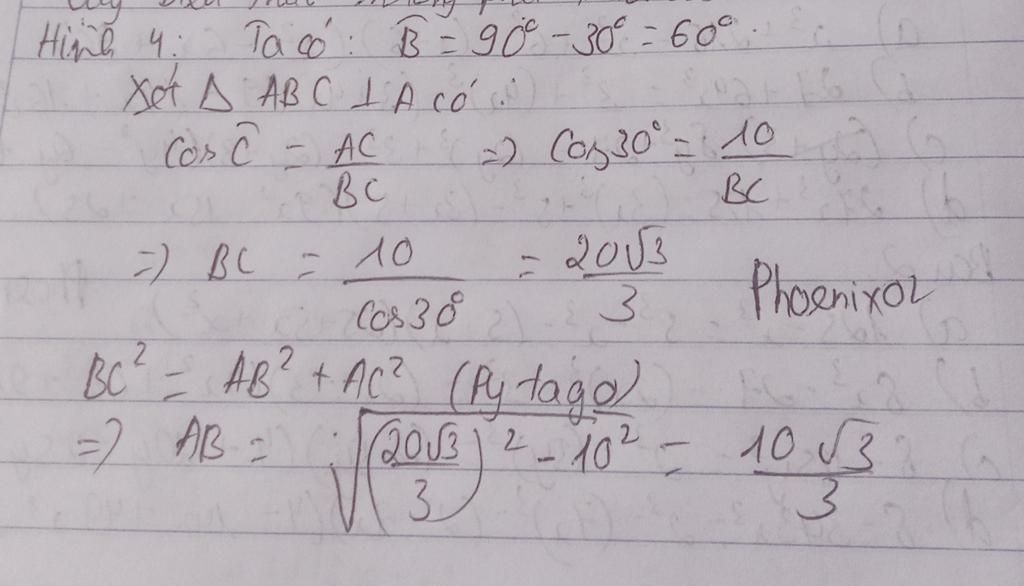 Hình 4: Ta có: B̂ = 90° - 30° = 60°.
Xét Δ ABC ⊥ A có:
Cos Ĉ = AC/BC => Cos30° = 10/BC
=> BC = 10/Cos30° = 20√3/3
Phoenixo2
BC² = AB² + AC² (Pytago)
=> AB = √((20√3/3)² - 10²) = 10√3/3